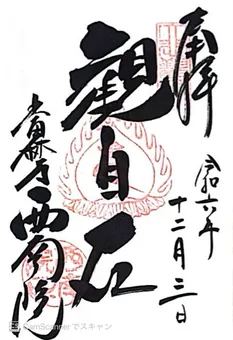 奉拝
令和六年
十二月三日
観自在
當麻寺 西南院
CamScannerでスキャン